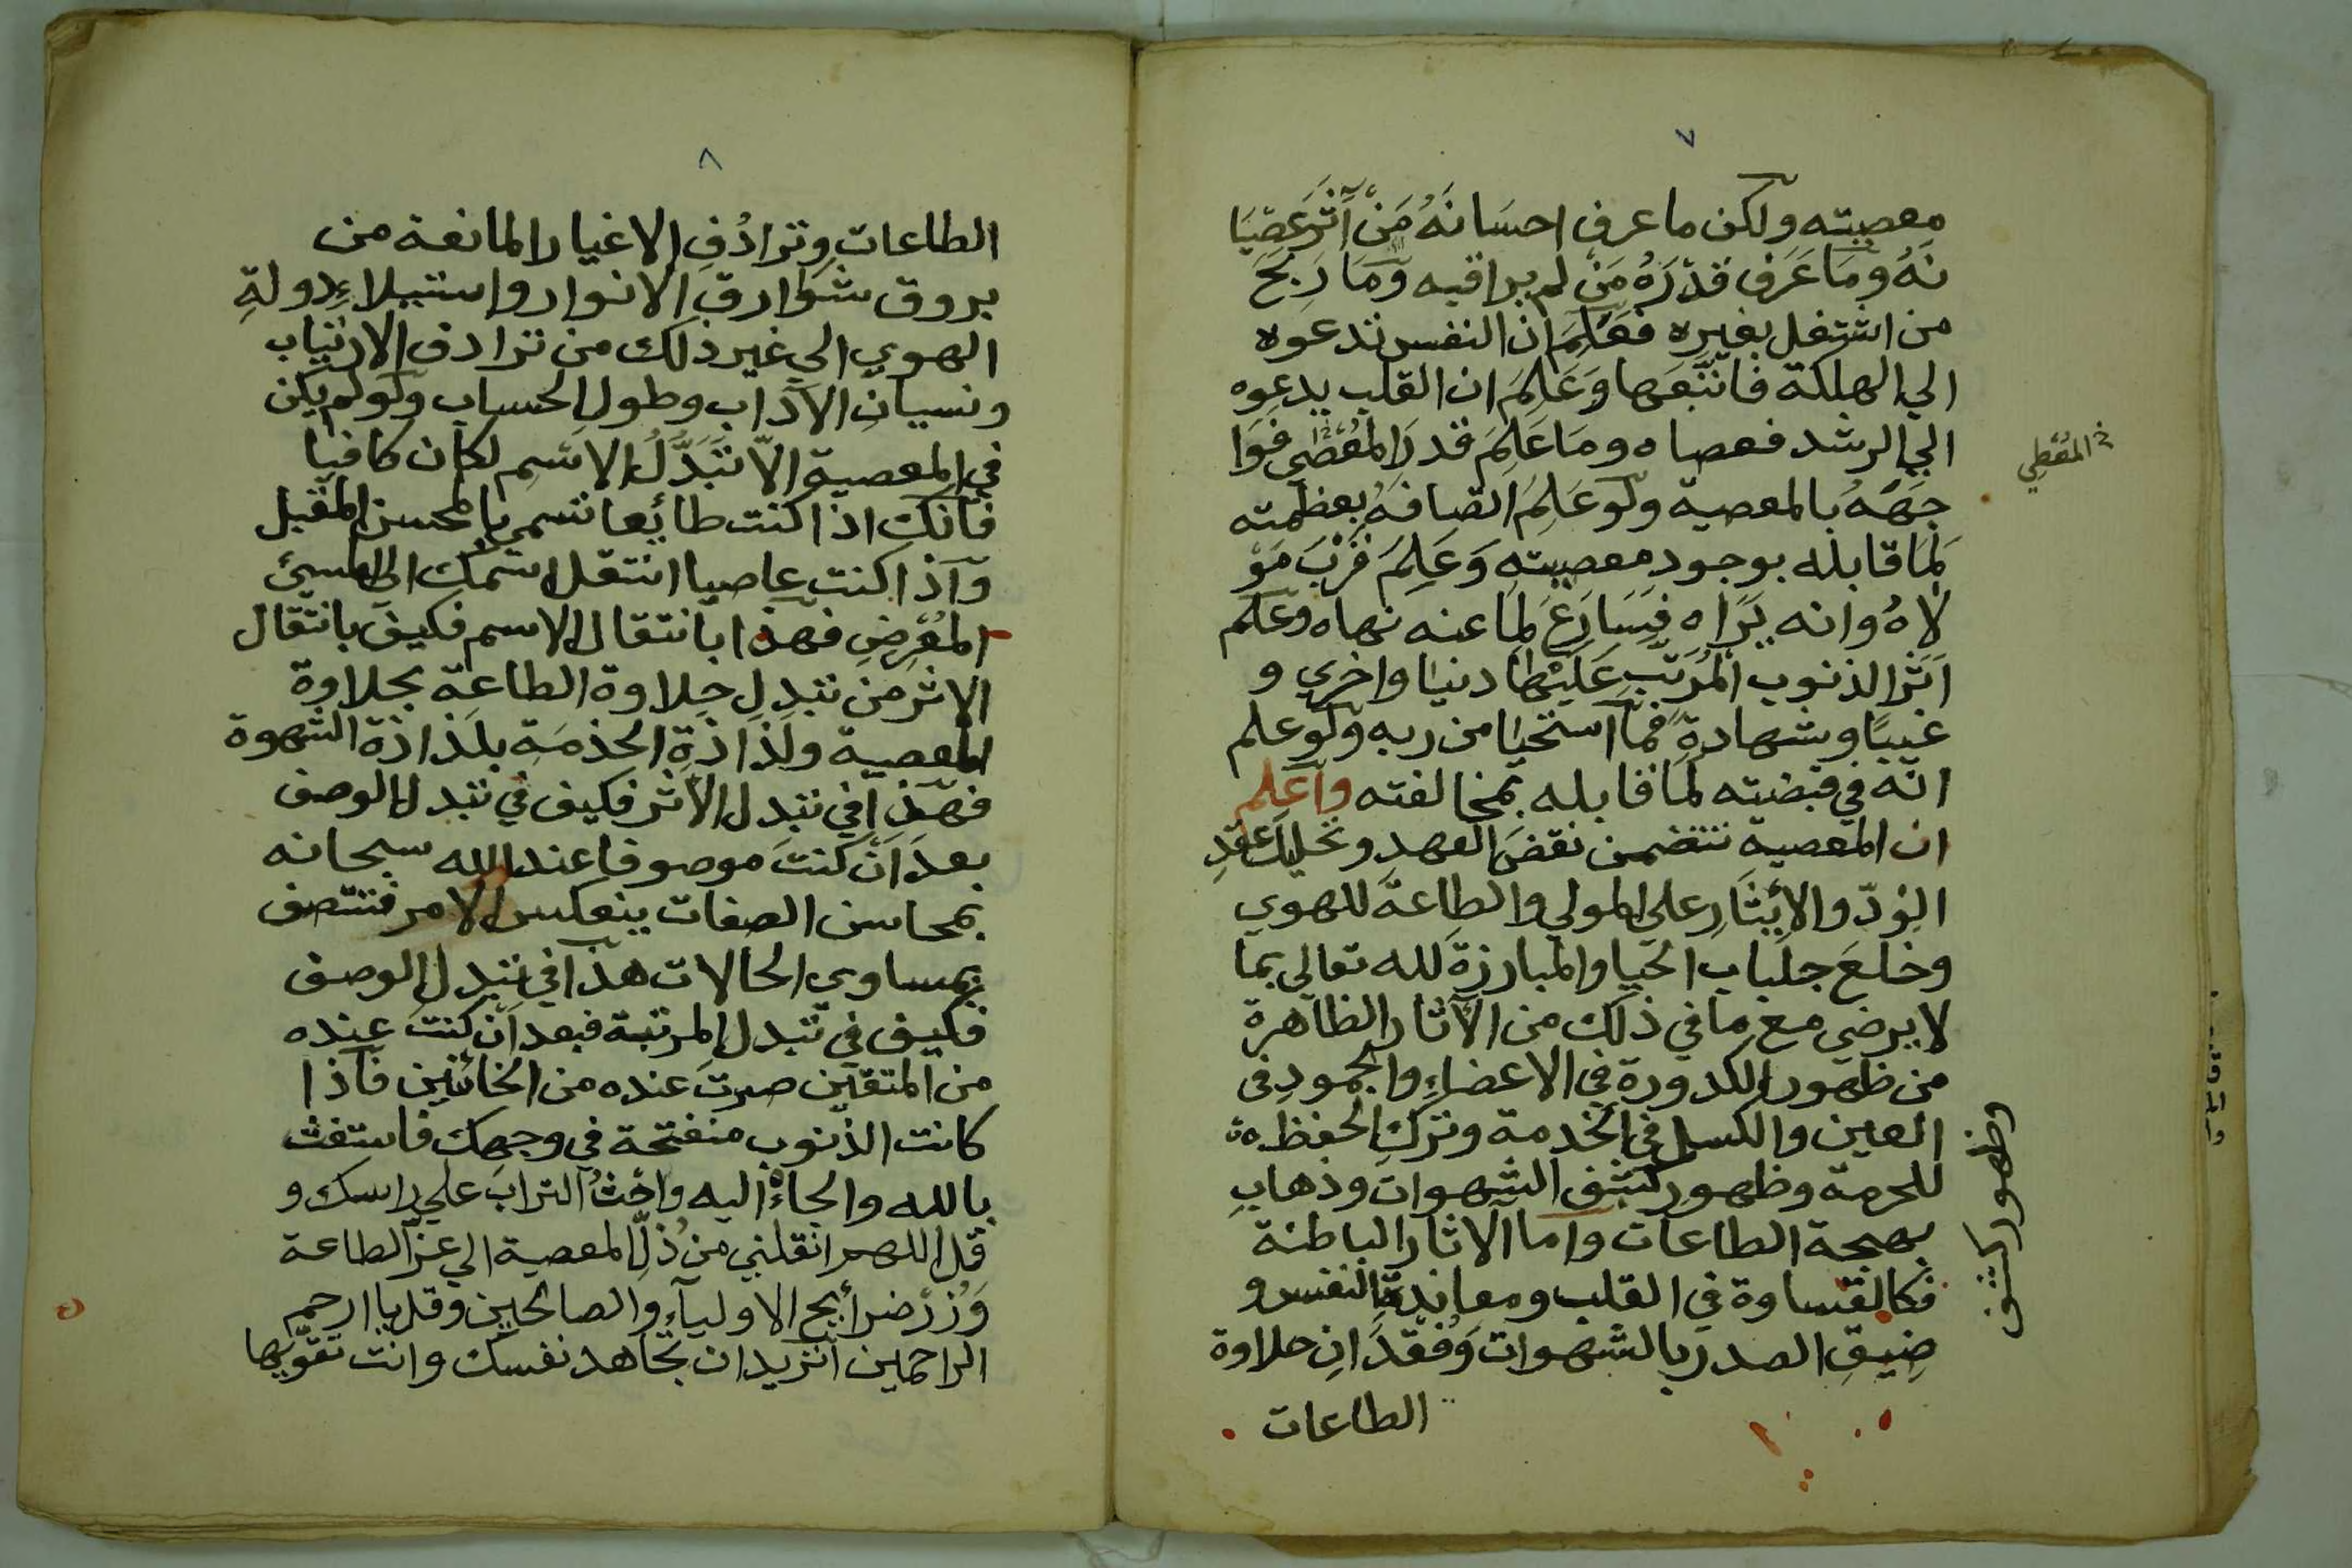 ٧
معصيته ولكن ما عرف احسَانَهُ مَنْ آثَرَ عَصِيَا
نَهُ وَمَا عَرَف قَدْرَهُ مَنْ لم يراقبه وَمَا رَبحَ
من اشتغل بغيره فعَلِمَ ان النفس تدعوه
الي الهلكة فاتّبعَها وَعَلِمَ ان القلب يدعوه
الي الرشد فعصاه ومَا عَلِمَ قدرَ المُعْصَي فوَا
المُعْطِي
جَهَهُ بالمعصية ولَو عَلِمَ اتصافَهُ بعظمته
لَمَا قابله بوجود معصيته وَعَلِمَ قرْبَ مَوْ
لاهُ وانه يَرَاه فيسَارعَ لِما عنه نهاه وعَلم
اَثَر الذنوب المُرَتّب عَلَيْهَا دنيا واخري و
غيبًا وشهادةً فمَا استحيا من ربه ولَو علم
انّه في قبضته لَمَا قابله بمخالفته واعلم
ان المعصية تتضمن نقضَ العهد وتحليل عقدِ
الوُدّ والأيثَارِ علي المولي والطاعةَ للهوي
وخلعَ جلباب الحيا والمبارزةَ لله تعالي بما
لا يرضي مع ما في ذلك من الآثار الظاهرة
من ظهور الكدورة في الاعضاءِ والجمودِ في
العين والكسل في الخدمة وتركِ الحفظ
للحرمة وظهور كشف الشهوات وذهابِ
وظهور كشف
بهجة الطاعات واما الآثار الباطنة
فكالقساوة في القلب ومعاندةِ النفس و
ضِيقِ الصدر بالشهوات وَفُقْدَانِ حلاوة
الطاعات
٨
الطاعات وترادُفِ الاغيار المانعة من
بروق شوارق الانوار واستيلاءِ دولةِ
الهوي الي غير ذلك من ترادف الارتياب
ونسيانِ الآداب وطول الحساب ولَو لم يكن
في المعصية الاّ تَبَدَّلُ الاسْمِ لكان كافيا
فانك اذا كنت طائعا تسمي بالمحسن المقبل
وَاذا كنت عاصيا انتقل اسمك الي المسيئ
المُعْرِضِ فهذا بانتقال الاسم فكيفَ بانتقال
الاثر من تبدل حلاوة الطاعة بحلاوة
المعصية ولَذاذَةِ الخدمَةِ بلَذاذة الشهوة
فهَذا في تبدل الأثر فكيف في تبدل الوصف
بعدَ اَنْ كنتَ موصوفا عند الله سبحانه
بمحاسن الصفات ينعكس الامر فتتصف
بمساوي الحالات هذا في تبدل الوصف
فكيف في تبدل المرتبة فبعد اَنْ كنتَ عنده
من المتقين صرتَ عنده من الخائنين فاذا
كانت الذنوب منفتحة في وجهك فاستغث
بالله والجاءْ اليه واحْثُ الترابَ علي راسك و
قل اللهم انقلني من ذُلّ المعصية الي عزّ الطاعة
وَزُرْ ضرأيح الاوليآءِ والصالحين وقل يا ارحم
الراحمين اتريد ان تجاهد نفسك وانت تقوّيها